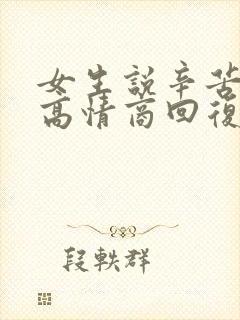 女生說辛苦
高情商回復
段軼群